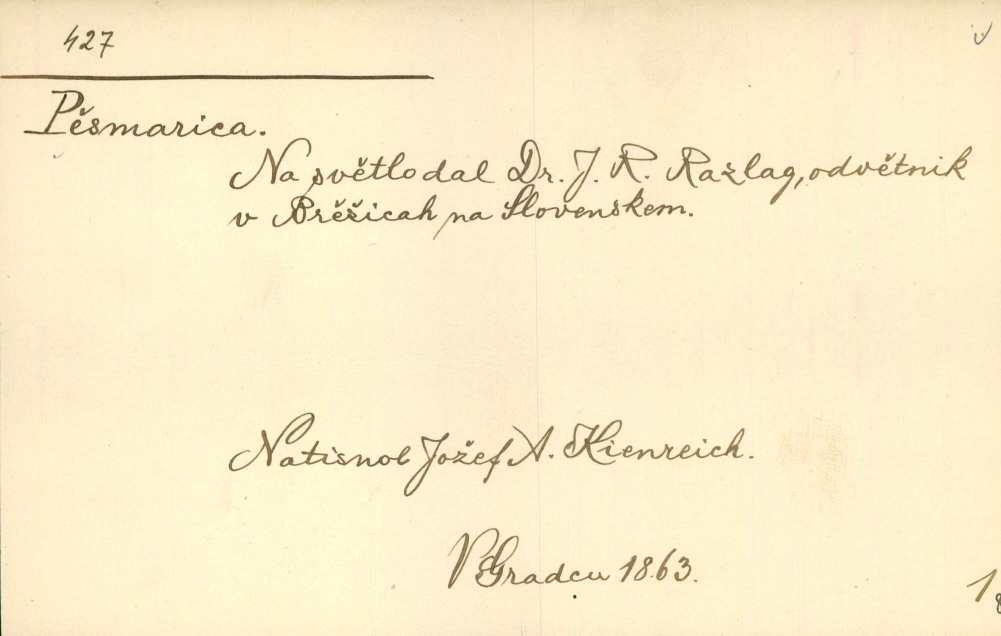 427
Pěsmarica.
Na světlo dal Dr. J. R. Razlag, odvětnik
v Brěžicah na Slovenskem.
Natisnol Jožef A. Kienreich.
V Gradcu 1863.
1